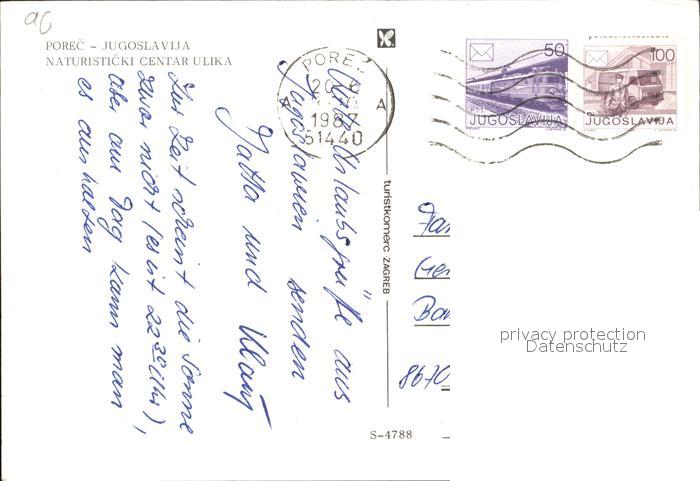 POREČ – JUGOSLAVIJA
NATURISTIČKI CENTAR ULIKA
POREČ
A A
1987
51440
50
JUGOSLAVIJA
100
JUGOSLAVIJA
Urlaubsgrüße aus
Jugoslawien senden
Jutta und
Zur Zeit scheint die Sonne
zwar nicht (es ist 22³⁰ Uhr),
aber am Tag kann man
es aushalten
turistkomerc ZAGREB
Fam
Ger
8670
privacy protection
Datenschutz
S-4788